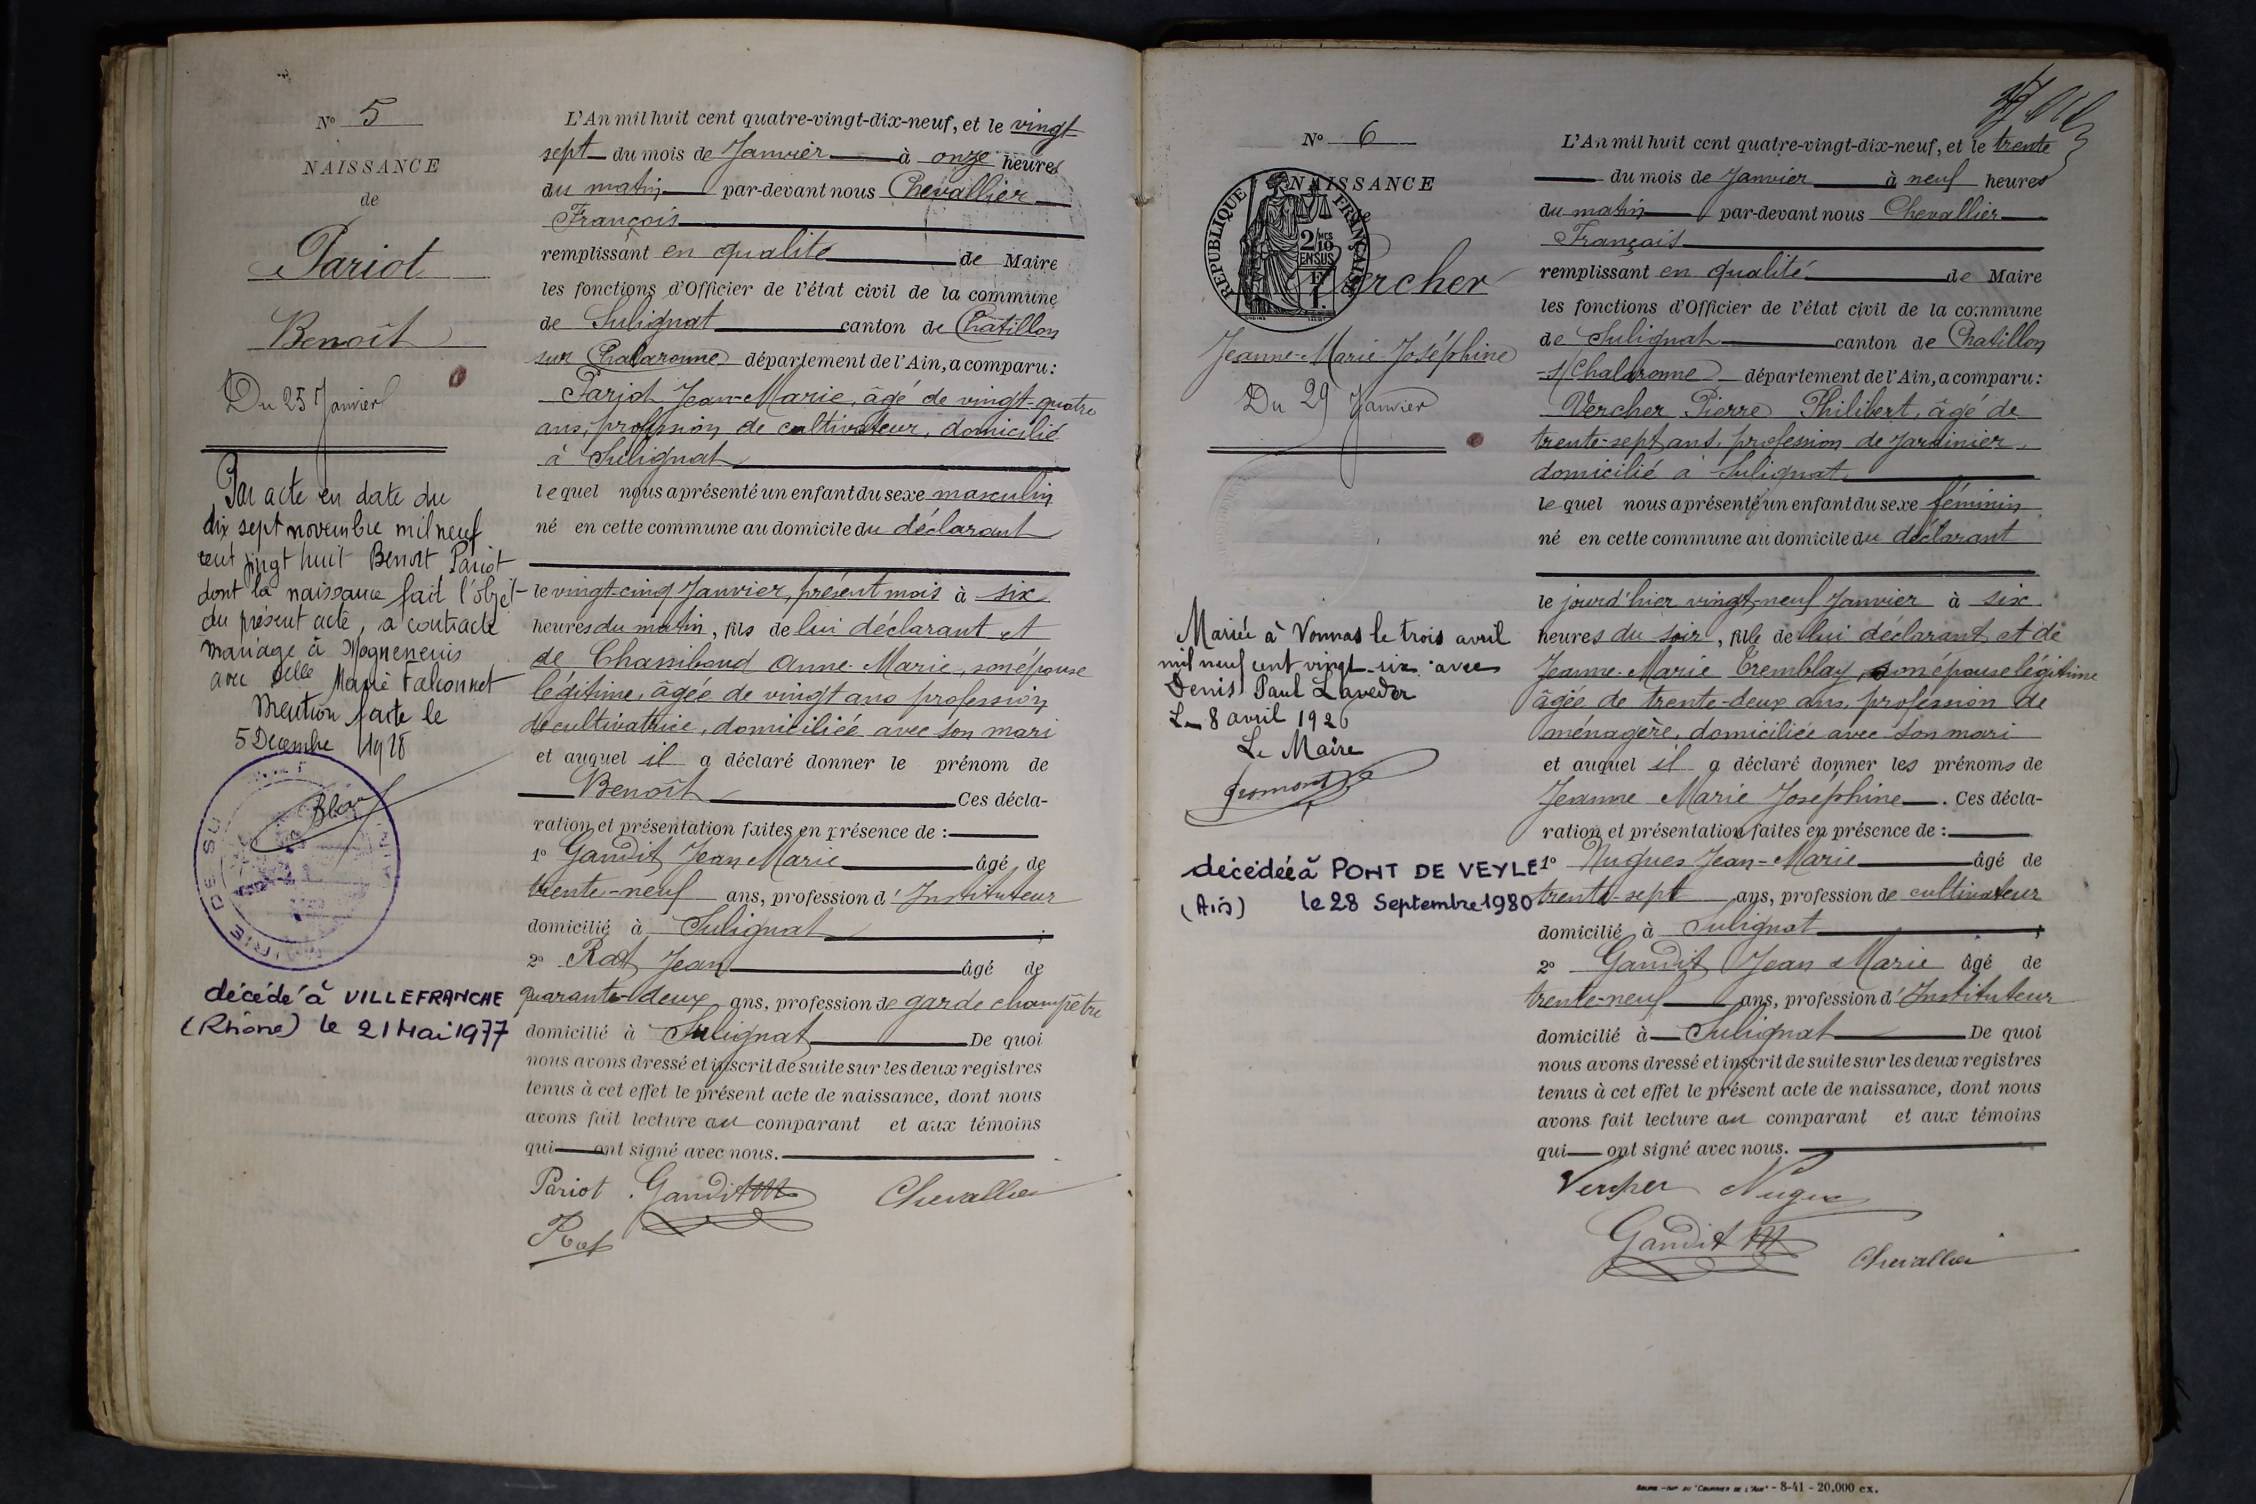 N° 5
NAISSANCE
de
Pariot
Benoît
Du 25 Janvier
Par acte en date du
dix sept novembre mil neuf
cent vingt huit Benoît Pariot
dont la naissance fait l'objet
du présent acte, a contracté
mariage à Mogneneins
avec Delle Marie Falconnet
Mention faite le
5 Décembre 1928
décédé à VILLEFRANCHE
(Rhône) le 21 Mai 1977
L'An mil huit cent quatre-vingt-dix-neuf, et le vingt-
sept du mois de Janvier à onze heures
du matin par-devant nous Chevallier
François
remplissant en qualité de Maire
les fonctions d'Officier de l'état civil de la commune
de Sulignat canton de Châtillon
sur Chalaronne département de l'Ain, a comparu:
Pariot Jean-Marie, âgé de vingt-quatre
ans, profession de cultivateur, domicilié
à Sulignat
lequel nous a présenté un enfant du sexe masculin
né en cette commune au domicile du déclarant
le vingt-cinq Janvier, présent mois à six
heures du matin, fils de lui déclarant et
de Chassiboud Anne-Marie, son épouse
légitime, âgée de vingt ans profession
de cultivatrice, domiciliée avec son mari
et auquel il a déclaré donner le prénom de
Benoît Ces décla-
ration et présentation faites en présence de :
1° Gandit Jean Marie âgé de
trente-neuf ans, profession d'Instituteur
domicilié à Sulignat ;
2° Rat Jean âgé de
quarante-deux ans, profession de garde champêtre
domicilié à Sulignat De quoi
nous avons dressé et inscrit de suite sur les deux registres
tenus à cet effet le présent acte de naissance, dont nous
avons fait lecture au comparant et aux témoins
qui ont signé avec nous.
Pariot Gandit JM Chevallier
Rat
N° 6
NAISSANCE
REPUBLIQUE FRANÇAISE
2/10 EN SUS
Vercher
Jeanne-Marie-Joséphine
Du 29 Janvier
Mariée à Vonnas le trois avril
mil neuf cent vingt-six avec
Denis Paul Laveder
Le 8 avril 1926
Le Maire
décédée à PONT DE VEYLE
(Ain) le 28 Septembre 1980
L'An mil huit cent quatre-vingt-dix-neuf, et le trente
du mois de Janvier à neuf heures
du matin par-devant nous Chevallier
François
remplissant en qualité de Maire
les fonctions d'Officier de l'état civil de la commune
de Sulignat canton de Chatillon
-s/Chalaronne département de l'Ain, a comparu:
Vercher Pierre Philibert, âgé de
trente-sept ans, profession de Jardinier,
domicilié à Sulignat
lequel nous a présenté un enfant du sexe féminin
né en cette commune au domicile du déclarant
le jourd'hier vingt-neuf Janvier à six
heures du soir, fille de lui déclarant et de
Jeanne-Marie Tremblay, son épouse légitime
âgée de trente-deux ans, profession de
ménagère, domiciliée avec son mari
et auquel il a déclaré donner les prénoms de
Jeanne Marie Joséphine. Ces décla-
ration et présentation faites en présence de :
1° Nugues Jean-Marie âgé de
trente-sept ans, profession de cultivateur
domicilié à Sulignat ;
2° Gandit Jean Marie âgé de
trente-neuf ans, profession d'Instituteur
domicilié à Sulignat De quoi
nous avons dressé et inscrit de suite sur les deux registres
tenus à cet effet le présent acte de naissance, dont nous
avons fait lecture au comparant et aux témoins
qui ont signé avec nous.
Vercher Nugues
Gandit JM Chevallier
- 8-41 - 20.000 ex.